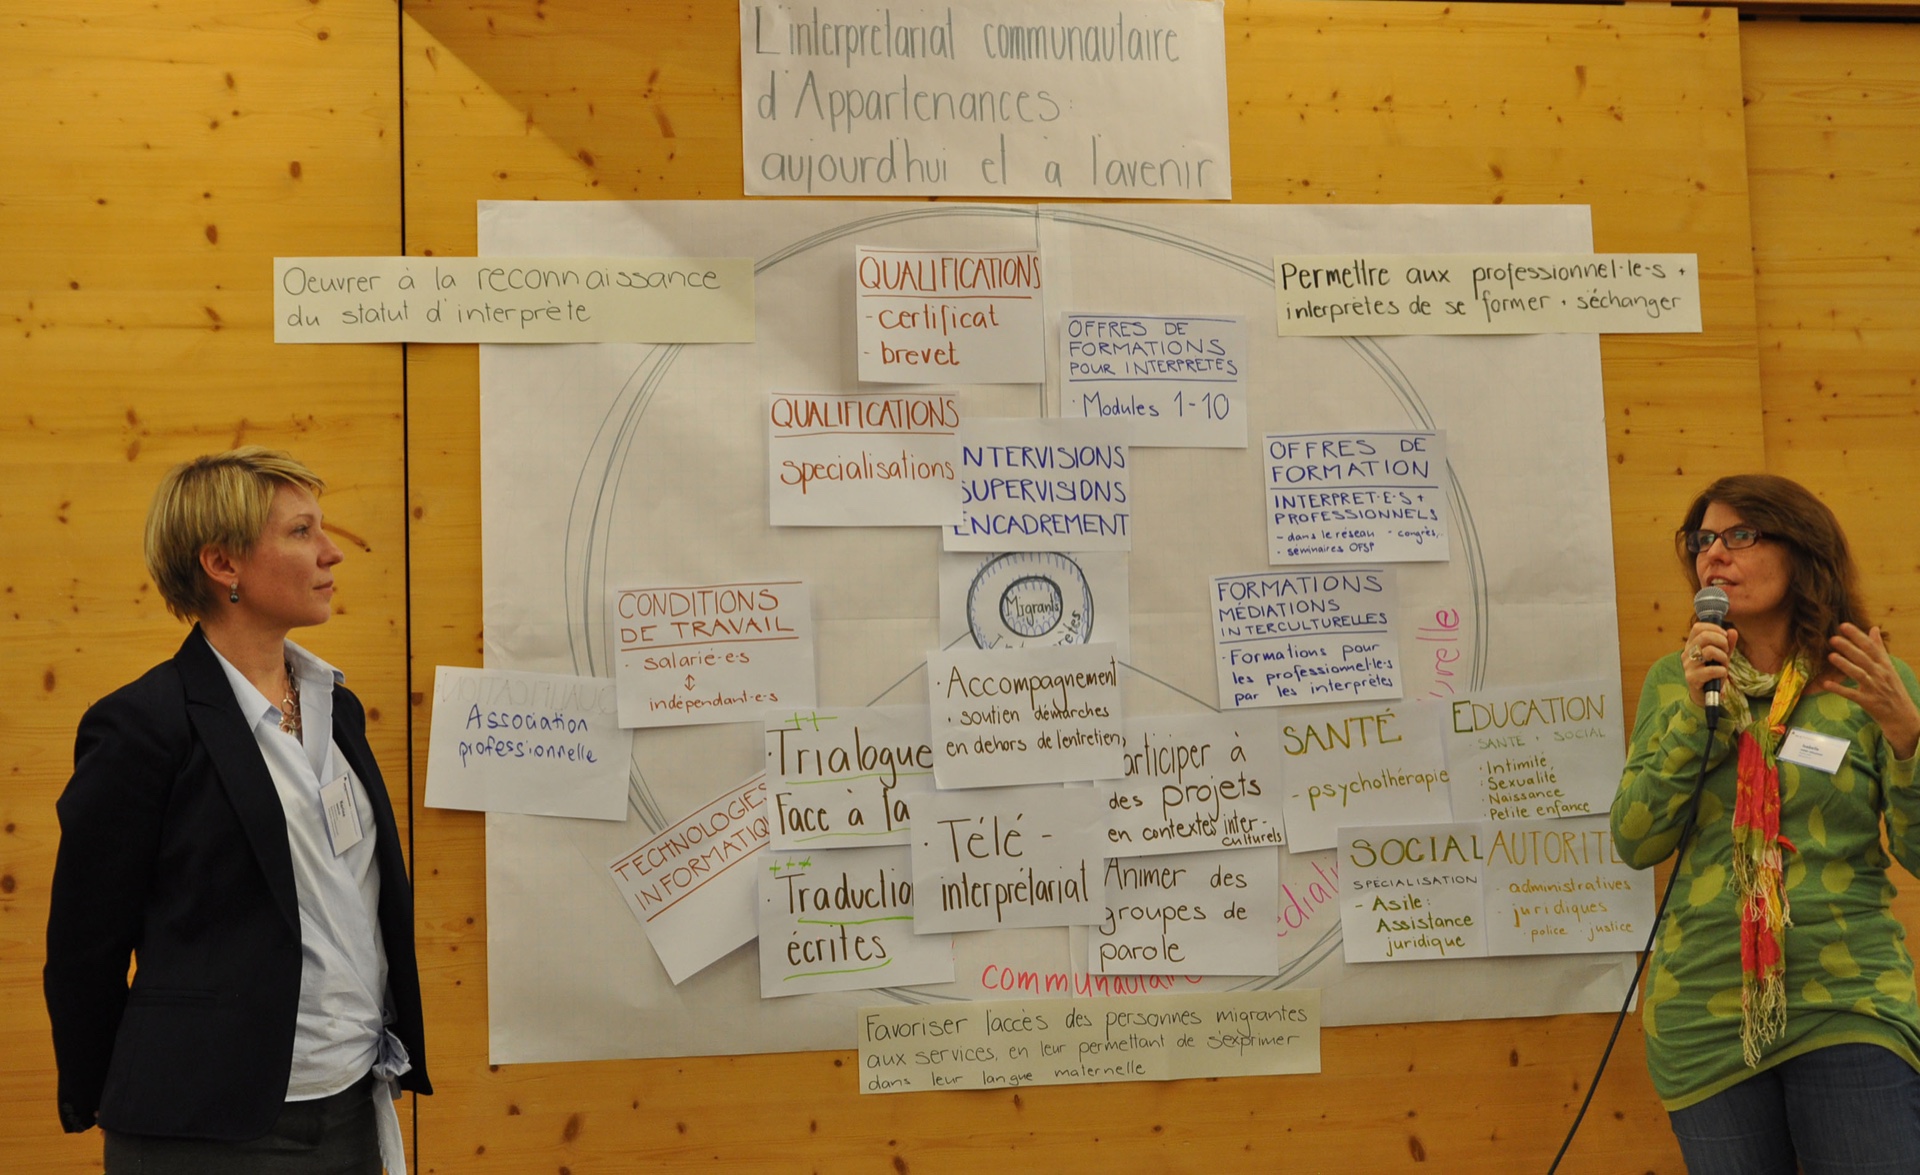 L'interprétariat communautaire
d'Appartenances:
aujourd'hui et à l'avenir
Oeuvrer à la reconnaissance
du statut d'interprète
Permettre aux professionnel·le·s +
interprètes de se former + s'échanger
QUALIFICATIONS
- certificat
- brevet
OFFRES DE
FORMATIONS
POUR INTERPRETES
· Modules 1-10
QUALIFICATIONS
spécialisations
NTERVISIONS
SUPERVISIONS
ENCADREMENT
OFFRES DE
FORMATION
INTERPRET·E·S +
PROFESSIONNELS
- dans le réseau - congrès,
· séminaires OFSP
Migrants
FORMATIONS
MÉDIATIONS
INTERCULTURELLES
· Formations pour
les professionnel·le·s
par les interprètes
CONDITIONS
DE TRAVAIL
· salarié·e·s
↕
indépendant·e·s
Association
professionnelle
TECHNOLOGIES
INFORMATIQ
++
· Trialogue
Face à fa
+++
· Traductio
écrites
· Accompagnement
· soutien démarches
en dehors de l'entretien,
· Télé-
interprétariat
articiper à
des projets
en contextes inter-
culturels
Animer des
groupes de
parole
SANTÉ
- psychothérapie
EDUCATION
· SANTÉ + SOCIAL
· Intimité
· Sexualité
· Naissance
· Petite enfance
SOCIAL
SPÉCIALISATION
- Asile:
Assistance
juridique
AUTORITE
· administratives
· juridiques
· police · justice
urelle
édiati
communautaire
Favoriser l'accès des personnes migrantes
aux services, en leur permettant de s'exprimer
dans leur langue maternelle